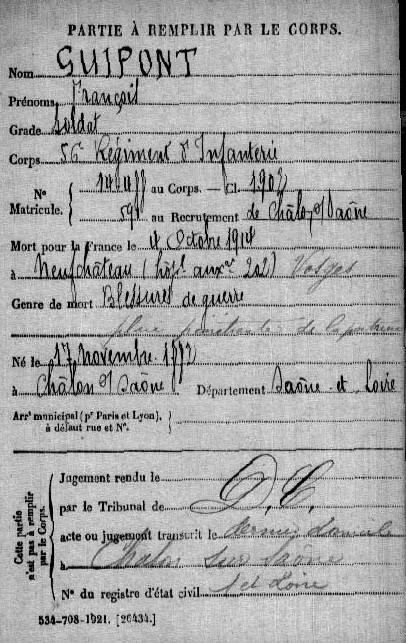 PARTIE À REMPLIR PAR LE CORPS.
Nom GUIPONT
Prénoms François
Grade Soldat
Corps 56e Régiment d'Infanterie
N° Matricule. { 14477 au Corps. — Cl. 1902
591 au Recrutement de Châlon s/ Saône
Mort pour la France le 4 Octobre 1914
à Neufchâteau (hôp. auxre 202) Vosges
Genre de mort Blessures de guerre
plaie pénétrante de la poitrine
Né le 17 novembre
à Châlon s/ Saône Département Saône-et-Loire
Arrt municipal (pr Paris et Lyon),
à défaut rue et N°.
Cette partie n'est pas à remplir par le Corps.
Jugement rendu le
par le Tribunal de D.C.
acte ou jugement transcrit le
à Chalon sur Saône
N° du registre d'état civil S et Loire
534-708-1921. [26434.]